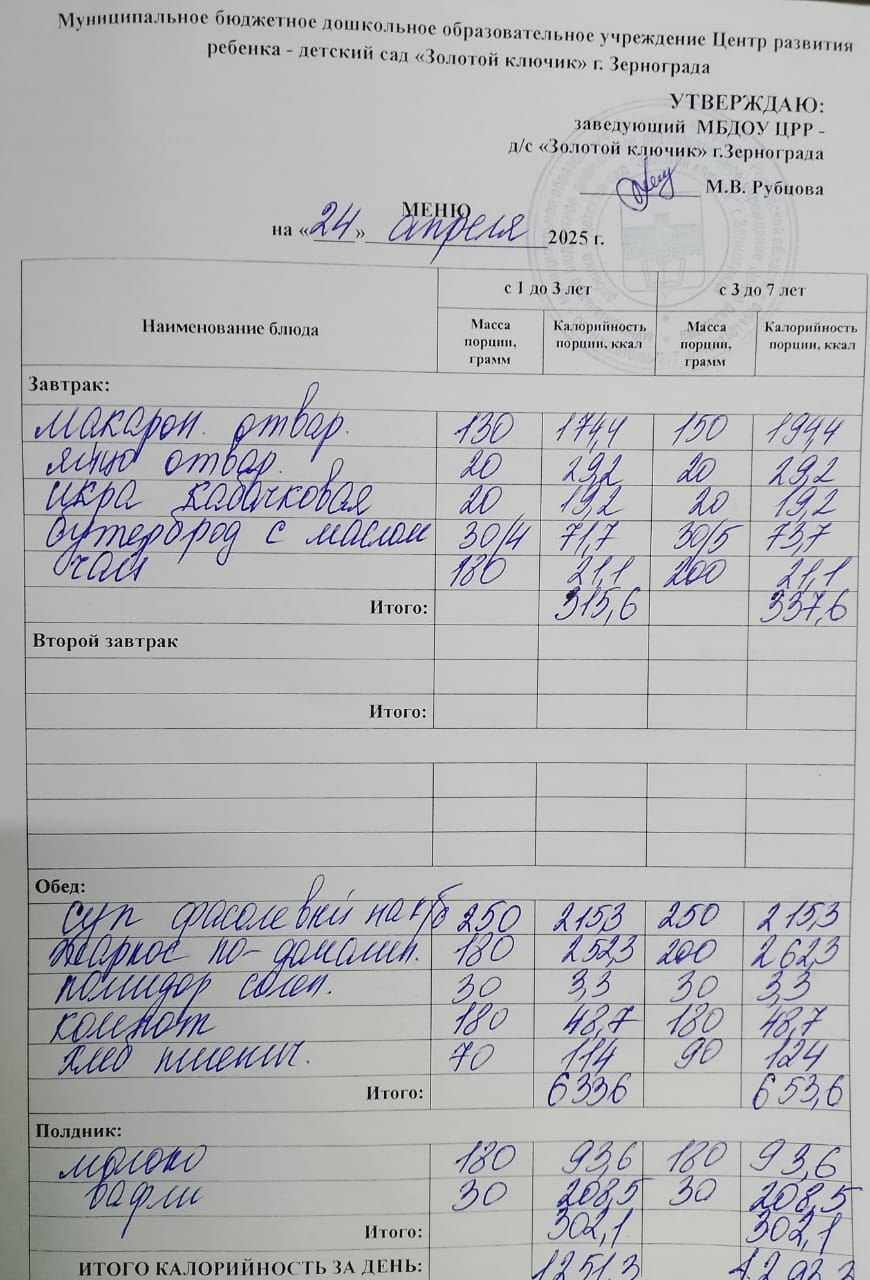 Муниципальное бюджетное дошкольное образовательное учреждение Центр развития
ребенка - детский сад «Золотой ключик» г. Зернограда
УТВЕРЖДАЮ:
заведующий МБДОУ ЦРР -
д/с «Золотой ключик» г.Зернограда
М.В. Рубцова
МЕНЮ
на «24» апреля 2025 г.
Наименование блюда с 1 до 3 лет с 3 до 7 лет
Масса порции, грамм Калорийность порции, ккал Масса порции, грамм Калорийность порции, ккал
Завтрак:
макарон. отвар. 130 174,4 150 194,4
яйцо отвар. 20 29,2 20 29,2
икра кабачковая 20 19,2 20 19,2
бутерброд с маслом 30/4 71,7 30/5 73,7
чай 180 21,1 200 21,1
Итого: 315,6 337,6
Второй завтрак
Итого:
Обед:
суп фасолевый на к/б 250 215,3 250 215,3
жаркое по-домашн. 180 252,3 200 262,3
помидор солен. 30 3,3 30 3,3
компот 180 48,7 180 48,7
хлеб пшенич. 70 114 90 124
Итого: 633,6 653,6
Полдник:
молоко 180 93,6 180 93,6
вафли 30 208,5 30 208,5
Итого: 302,1 302,1
ИТОГО КАЛОРИЙНОСТЬ ЗА ДЕНЬ: 1251,3